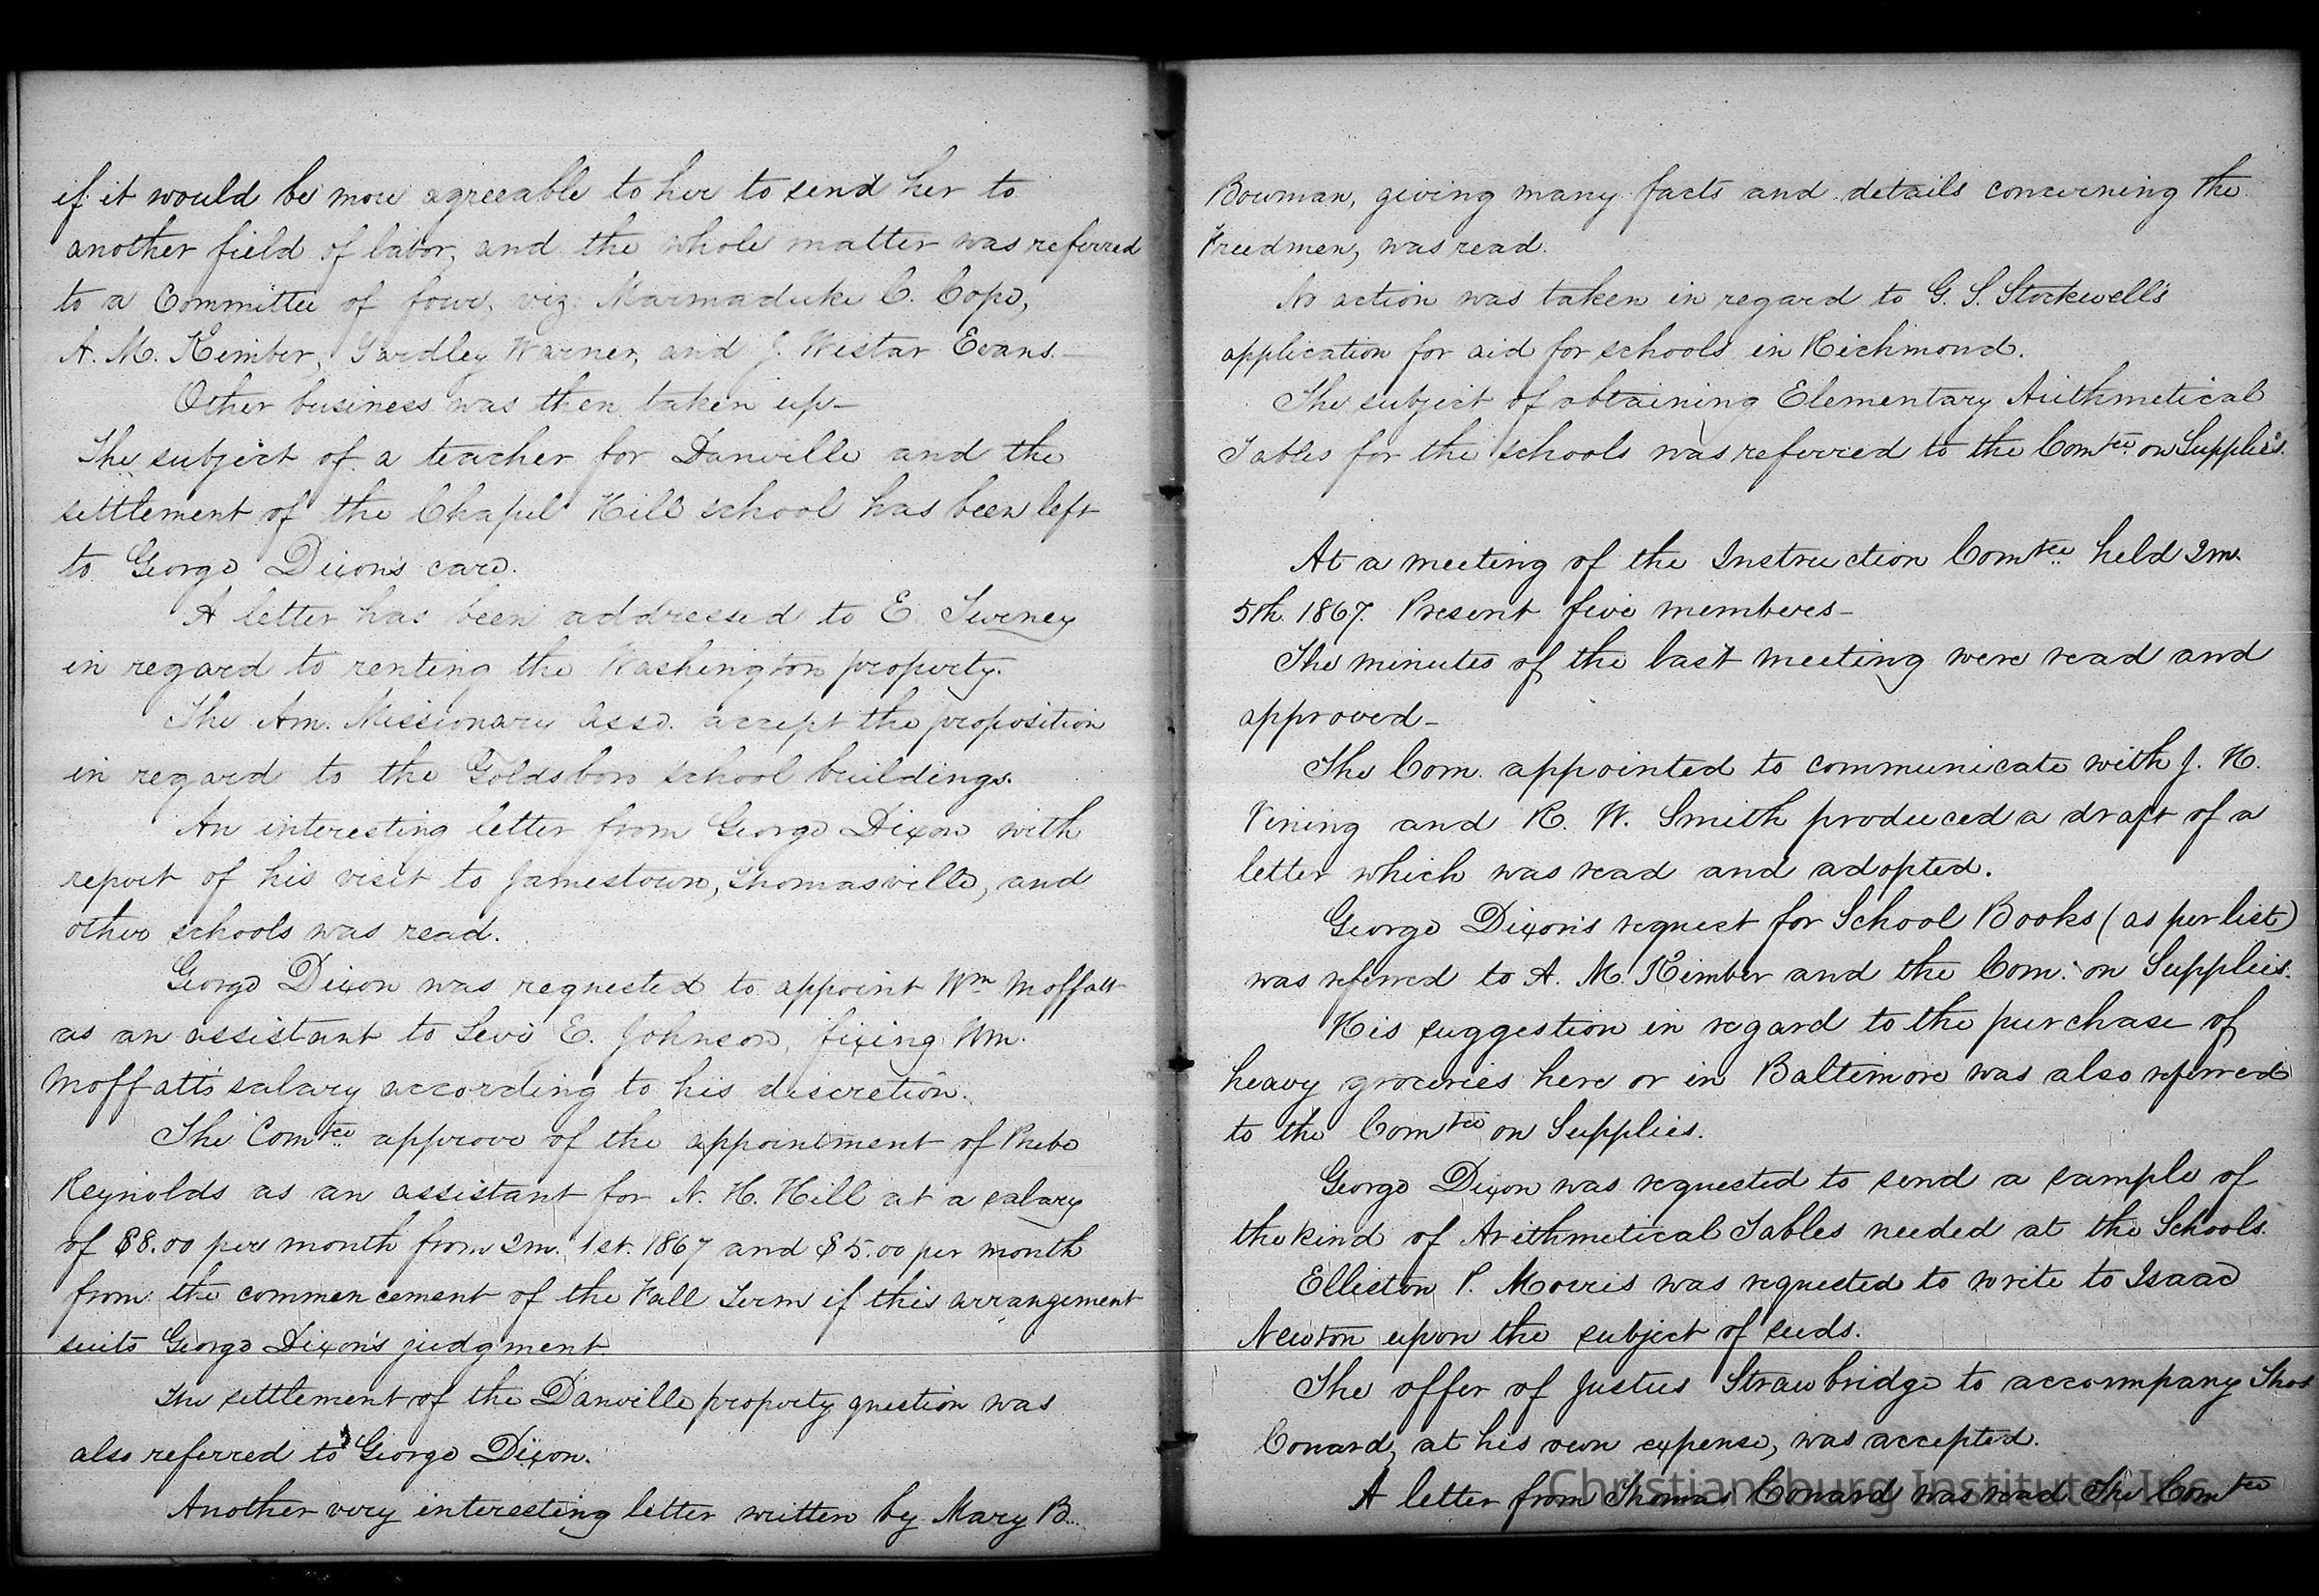 if it would be more agreeable to her to send her to
another field of labor, and the whole matter was referred
to a Committee of four, viz: Marmaduke C. Cope,
A. M. Kimber, Yardley Warner, and J. Wistar Evans.
Other business was then taken up-
The subject of a teacher for Danville and the
settlement of the Chapel Hill school has been left
to George Dixon's care.
A letter has been addressed to E.
in regard to renting the Washington property.
The Am. Missionary Asso. accept the proposition
in regard to the Goldsboro school buildings.
An interesting letter from George Dixon with
report of his visit to Jamestown, Thomasville, and
other schools was read.
George Dixon was requested to appoint Wm Moffatt
as an assistant to Levi E. Johnson, fixing Wm.
Moffatt's salary according to his discretion.
The Comtee approve of the appointment of Phebe
Reynolds as an assistant for N. H. Hill at a salary
of $8.00 per month from 2m. 1st. 1867 and $5.00 per month
from the commencement of the Fall Term if this arrangement
suits George Dixon's judgment.
The settlement of the Danville property question was
also referred to George Dixon.
Another very interesting letter written by Mary B.
Bowman, giving many facts and details concerning the
Freedmen, was read.
No action was taken in regard to G. S. Stockwell's
application for aid for schools in Richmond.
The subject of obtaining Elementary Arithmetical
Tables for the schools was referred to the Comtee on Supplies.
At a meeting of the Instruction Comtee held 2m.
5th. 1867. Present five members-
The minutes of the last meeting were read and
approved-
The Com. appointed to communicate with J. H.
Vining and R. W. Smith produced a draft of a
letter which was read and adopted.
George Dixon's request for School Books (as per list)
was referred to A. M. Kimber and the Com. on Supplies.
His suggestion in regard to the purchase of
heavy groceries here or in Baltimore was also referred
to the Comtee on Supplies.
George Dixon was requested to send a sample of
the kind of Arithmetical Tables needed at the Schools.
Elliston P. Morris was requested to write to Isaac
Newton upon the subject of seeds.
The offer of Justus Strawbridge to accompany Thos
Conard, at his own expense, was accepted.
A letter from Thomas Conard was read. The Comtee
Christiansburg Institute, Inc.